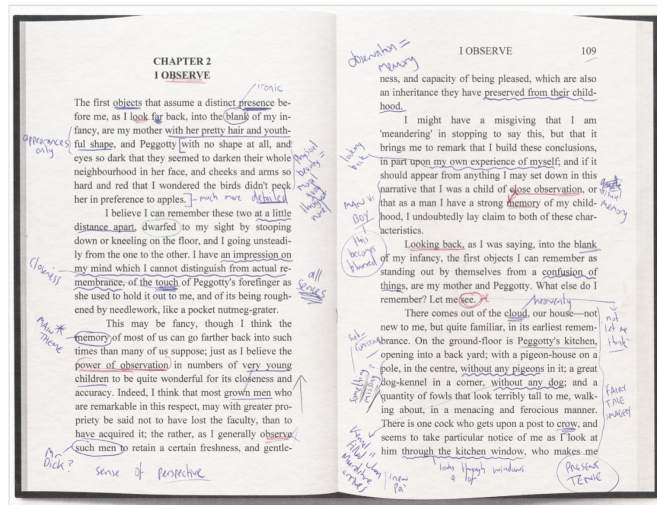 CHAPTER 2
I OBSERVE
ironic
The first objects that assume a distinct presence be-
fore me, as I look far back, into the blank of my in-
fancy, are my mother with her pretty hair and youth-
ful shape, and Peggotty with no shape at all, and
eyes so dark that they seemed to darken their whole
neighbourhood in her face, and cheeks and arms so
hard and red that I wondered the birds didn't peck
her in preference to apples. much more detailed
appearances
only
I believe I can remember these two at a little
distance apart, dwarfed to my sight by stooping
down or kneeling on the floor, and I going unsteadi-
ly from the one to the other. I have an impression on
my mind which I cannot distinguish from actual re-
membrance, of the touch of Peggotty's forefinger as
she used to hold it out to me, and of its being rough-
ened by needlework, like a pocket nutmeg-grater.
closeness
all
senses
This may be fancy, though I think the
memory of most of us can go farther back into such
times than many of us suppose; just as I believe the
power of observation in numbers of very young
children to be quite wonderful for its closeness and
accuracy. Indeed, I think that most grown men who
are remarkable in this respect, may with greater pro-
priety be said not to have lost the faculty, than to
have acquired it; the rather, as I generally observe
such men to retain a certain freshness, and gentle-
MAIN
THEME
Mr.
Dick?
sense of perspective
I OBSERVE
109
observation =
memory
ness, and capacity of being pleased, which are also
an inheritance they have preserved from their child-
hood.
I might have a misgiving that I am
'meandering' in stopping to say this, but that it
brings me to remark that I build these conclusions,
in part upon my own experience of myself; and if it
should appear from anything I may set down in this
narrative that I was a child of close observation, or
that as a man I have a strong memory of my child-
hood, I undoubtedly lay claim to both of these char-
acteristics.
looking
back
MAN vs
BOY
this
becomes
blurred
memory
Looking back, as I was saying, into the blank
of my infancy, the first objects I can remember as
standing out by themselves from a confusion of
things, are my mother and Peggotty. What else do I
remember? Let me see.
heavenly
There comes out of the cloud, our house—not
new to me, but quite familiar, in its earliest remem-
brance. On the ground-floor is Peggotty's kitchen,
opening into a back yard; with a pigeon-house on a
pole, in the centre, without any pigeons in it; a great
dog-kennel in a corner, without any dog; and a
quantity of fowls that look terribly tall to me, walk-
ing about, in a menacing and ferocious manner.
There is one cock who gets upon a post to crow, and
seems to take particular notice of me as I look at
him through the kitchen window, who makes me
not
let me
think
something
missing?
FAIRY
TALE
IMAGERY
kennel
filled
when
Murdstone
arrives
new
Pa
looks through windows
a lot
PRESENT
TENSE